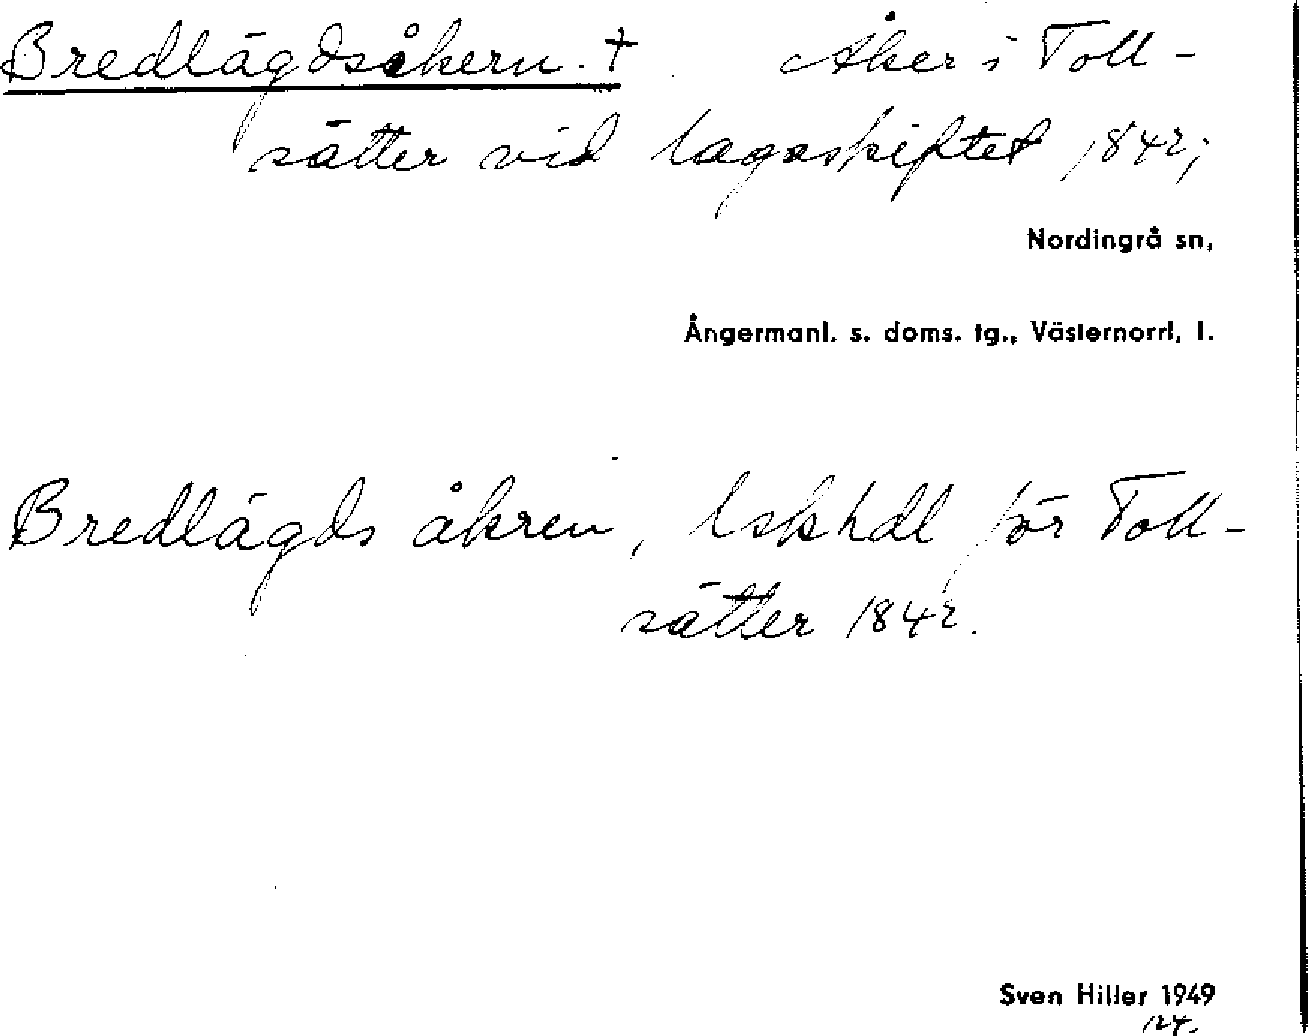 Bredlägdsåkern. † Åker i Toll-
sätter vid lagaskiftet 1842;
Nordingrå sn,
Ångermanl. s. doms. tg., Västernorrl. l.
Bredlägds åkren, lskhdl för Toll-
sätter 1842.
Sven Hiller 1949